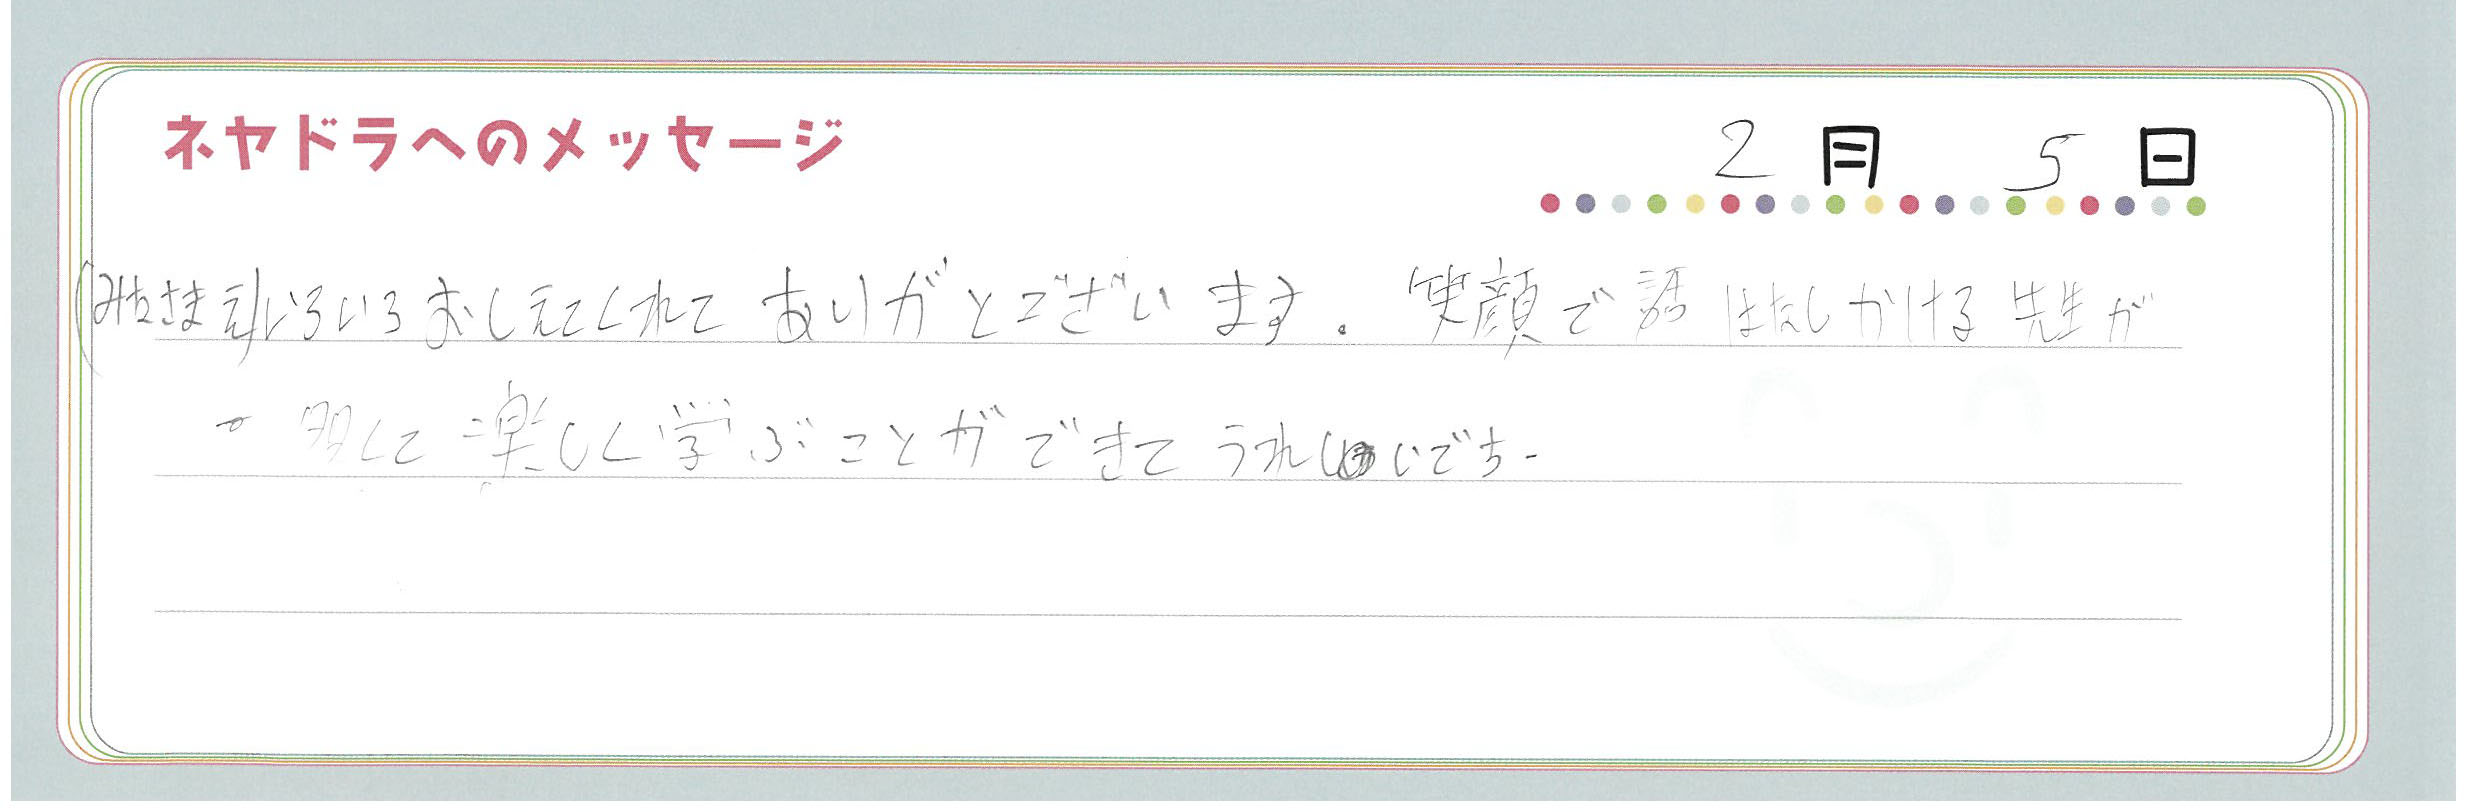 ネヤドラへのメッセージ
2月 5日
(みなさまえ)いろいろおしえてくれてありがとございます. 笑顔で話はなしかける先生が
多くて楽しく学ぶことができてうれしいでち.